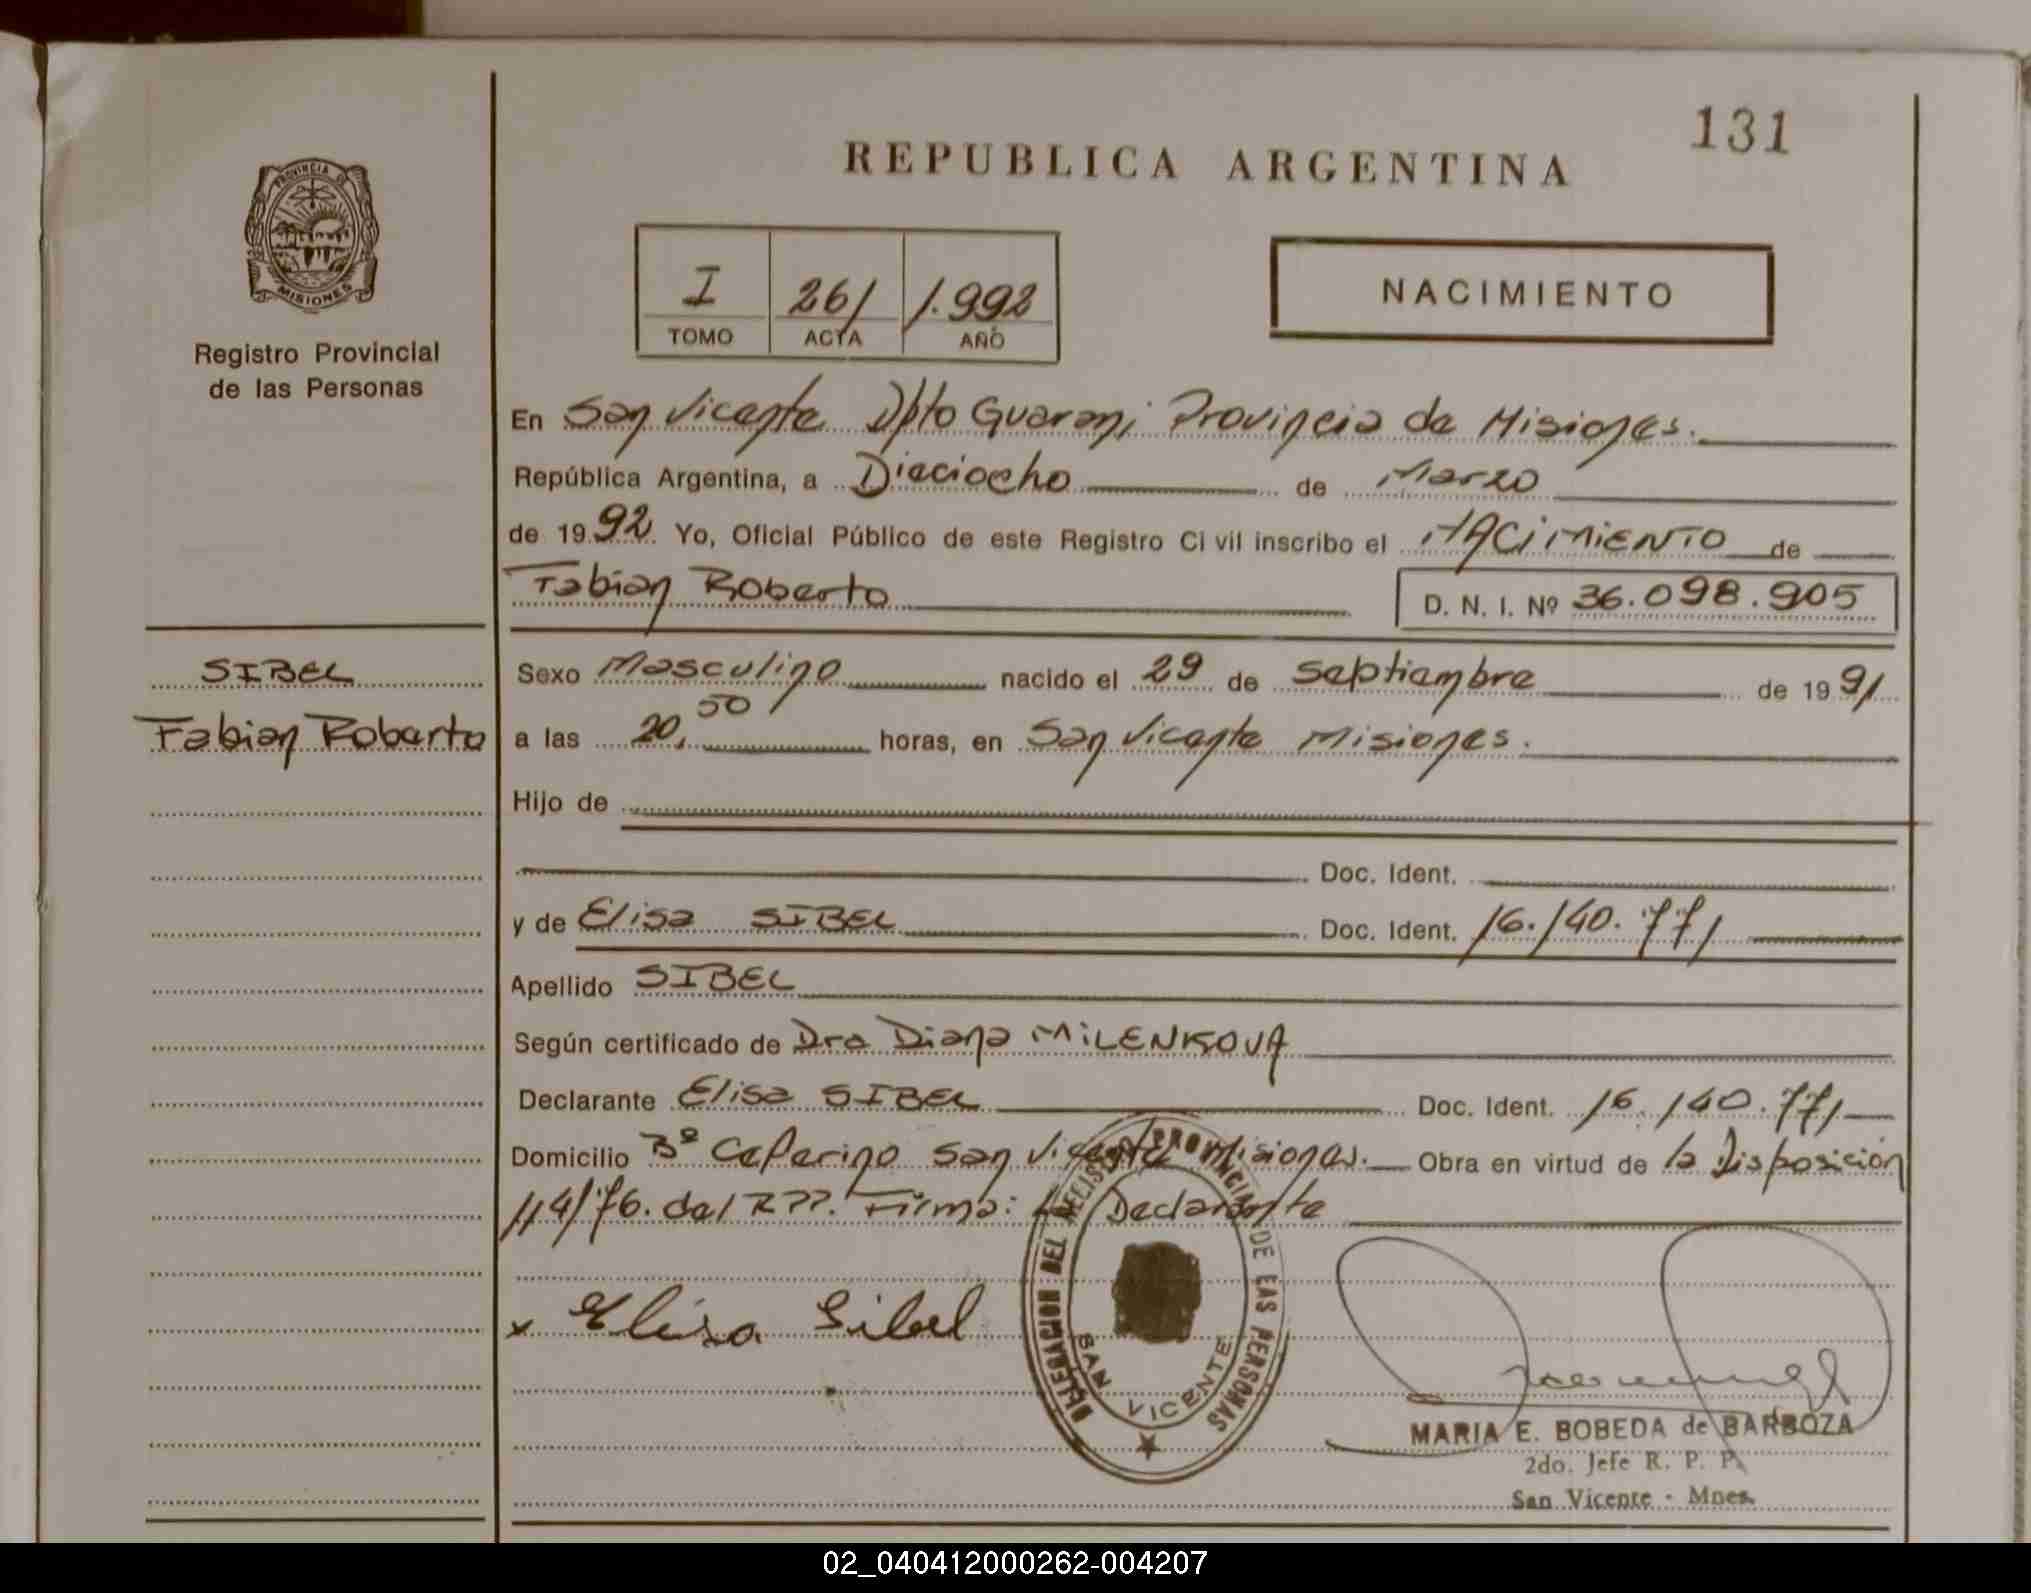 131
REPUBLICA ARGENTINA
PROVINCIA DE
MISIONES
Registro Provincial
de las Personas
I 261 1.992
TOMO ACTA AÑO
NACIMIENTO
En San Vicente Dpto Guarani Provincia de Misiones.
República Argentina, a Dieciocho de Marzo
de 1992 Yo, Oficial Público de este Registro Civil inscribo el NACIMIENTO de
Fabian Roberto D. N. I. Nº 36.098.905
SIBEL
Fabian Roberto
Sexo Masculino nacido el 29 de Septiembre de 1991
a las 20,50 horas, en San Vicente Misiones.
Hijo de
Doc. Ident.
y de Elisa SIBEL Doc. Ident. 16.140.771
Apellido SIBEL
Según certificado de Dra Diana MILENKOVA
Declarante Elisa SIBEL Doc. Ident. 16.140.771
Domicilio Bº Ceferino San Vicente Misiones. Obra en virtud de la Disposición
114/76. del RPP. Firma: La Declarante
x Elisa Sibel
DELEGACION DEL REGISTRO PROVINCIAL DE LAS PERSONAS
SAN VICENTE
MARIA E. BOBEDA de BARBOZA
2do. Jefe R. P. P.
San Vicente - Mnes.
02_040412000262-004207